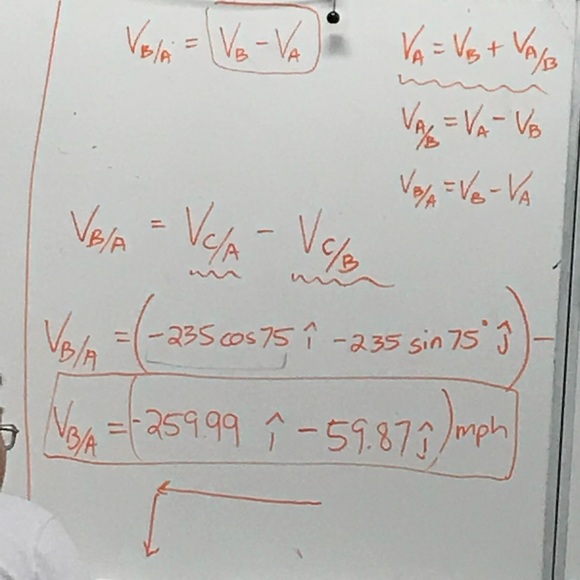 V_B/A = V_B - V_A
V_A = V_B + V_A/B
V_A/B = V_A - V_B
V_B/A = V_B - V_A
V_B/A = V_C/A - V_C/B
V_B/A = (-235 cos 75 î - 235 sin 75° ĵ) -
V_B/A = (-259.99 î - 59.87 ĵ) mph